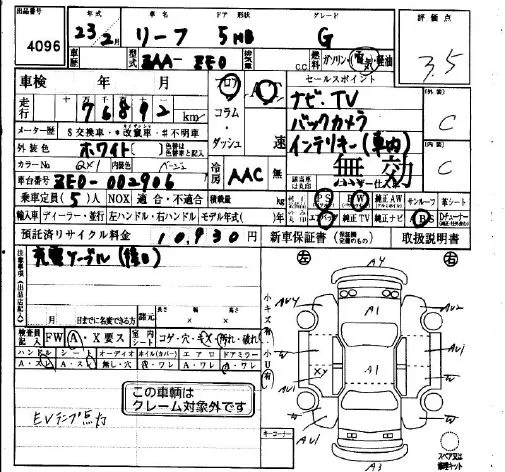 出品番号
4096
年式
23年2月
車名
リーフ
ドア 形状
5 HB
グレード
G
評価点
3.5
車歴
型式
ZAA-ZE0
排気量
C.C.
燃料
ガソリン・電気・軽油
車検 年 月
走行
76892 km
メーター歴 S交換車・*改竄車・#不明車
外装色
ホワイト
カラーNo. QX1 内装色 ベージュ
車台番号
ZE0-002906
フロア
コラム
・
ダッシュ
速
冷房
AAC
無
セールスポイント
ナビ・TV
バックカメラ
インテリキー(車内)
無効
外装
C
内装
C
乗車定員(5)人 NOX 適合・不適合 積載量 kg
PS PW 純正AW サンルーフ 革シート
輸入車 ディーラー・並行 左ハンドル・右ハンドル モデル年式( )年
エアバッグ 純正TV 純正ナビ
預託済リサイクル料金
10,930円
新車保証書 取扱説明書
注意事項
充電ケーブル
月 日までに名変できる方
諸元
長さ 幅 高さ
検査員記入
FW A・X要ス
室内シート
コゲ・穴・キズ・汚れ・破れ
ハンドル シート オーディオ ホイル(カバー) エアロ ドアミラー
A・スレ A・スレ 無し・穴 A・ワレ A・ワレ A・ワレ
EVランプ点灯
この車輌は
クレーム対象外です
キーコーナー
左
右
A4
A1
A1
XY
A3
AU4
AU2
AU1
W
W
AU1
W
AU1
スペア又は
修理キット